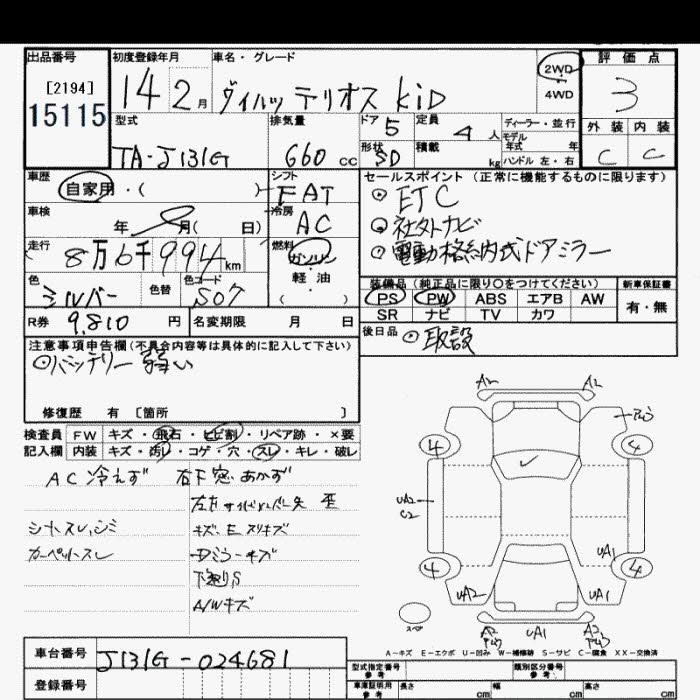 出品番号 初度登録年月 車名・グレード 2WD ・ 4WD 評価点
[2194] 15115 14 2月 ダイハツ テリオス KiD 3
型式 排気量 ドア 5 定員 4人 ディーラー・並行 外装 内装
モデル年式 年
TA-J131G 660cc 形状 5D 積載 kg ハンドル 左・右 C C
車歴 シフト セールスポイント (正常に機能するものに限ります)
自家用・( ) FAT ⊙ ETC
車検 冷房 ⊙ 社外ナビ
年 月( 日) AC ⊙ 電動格納式ドアミラー
走行 燃料
8万6千994km ガソリン・軽油・( )
色 色替 色コード 装備品(純正品に限り○をつけてください) 新車保証書
シルバー S07 PS PW ABS エアB AW 有・無
SR ナビ TV カワ
R券 9,810円 名変期限 月 日 後日品 ⊙ 取説
注意事項申告欄(不具合内容等は具体的に記入して下さい)
⊙バッテリー弱い
修復歴 有 [箇所 ]
検査員 FW キズ・飛石・ヒビ割・リペア跡・×要
記入欄 内装 キズ・汚レ・コゲ・穴・スレ・キレ・破レ
AC冷えず 右下窓あかず
シートスレ,シミ キズ、E スリキズ
カーペットスレ Dミラーキズ
下廻りS
A/Wキズ
A2 A2
4 4
UA2
C2
UA1
4 4
UA2 UA1
スペア UA1
A-キズ E-エクボ U-凹み W-補修跡 S-サビ C-腐食 XX-交換済
車台番号 J131G-024681
登録番号
型式指定番号 参考 類別区分番号 参考
車庫証明用 参考 長さ cm 幅 cm 高さ cm